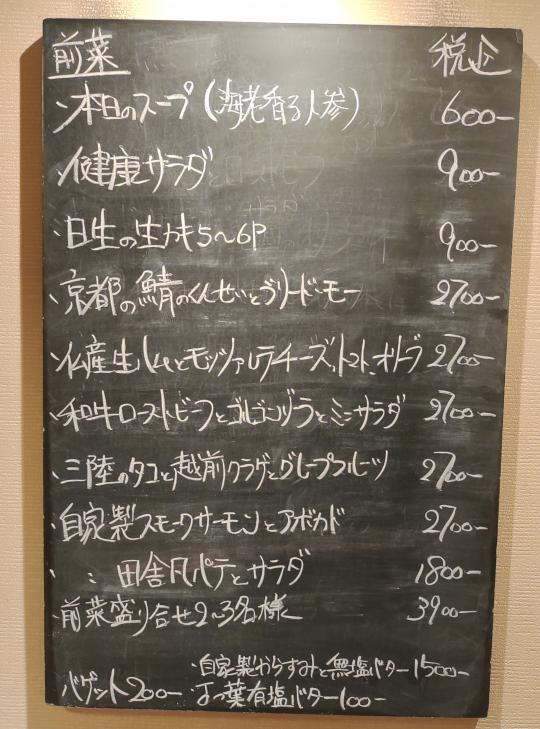 前菜 税込
・本日のスープ(海老香る人参) 600-
・健康サラダ 900-
・日生の生カキ5~6P 900-
・京都の鯖のくんせいとブリードモー 2700-
・仏産生ハムとモッツァレラチーズ、トマト、オリーブ 2700-
・和牛ローストビーフとゴルゴンゾラとミニサラダ 2700-
・三陸のタコと越前クラゲとグレープフルーツ 2700-
・自家製スモークサーモンとアボカド 2700-
・ 〃 田舎風パテとサラダ 1800-
・前菜盛り合せ2~3名様 3900-
・自家製からすみと無塩バター1500-
バゲット200- ・よつ葉有塩バター100-